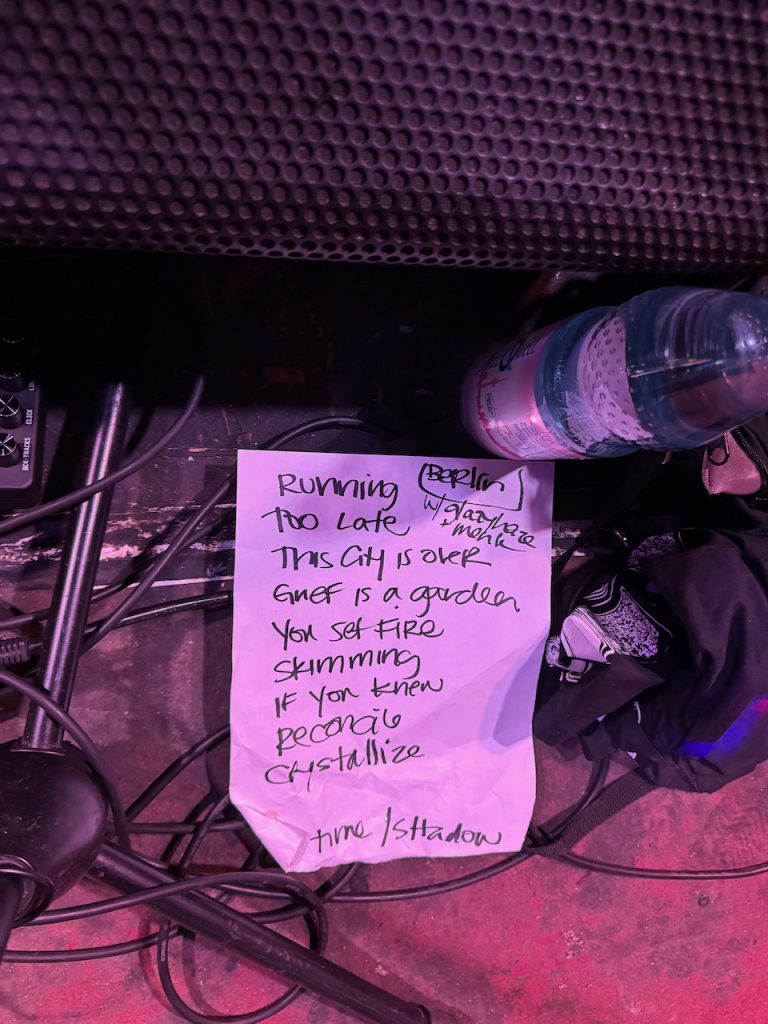 Running (Berlin)
w/ glazyhaze
Too Late
+ 
This City is over
Grief is a garden
You set Fire
Skimming
IF You knew
Reconcile
Crystallize
time/SHadow
CLICK
BCK-TRACKS